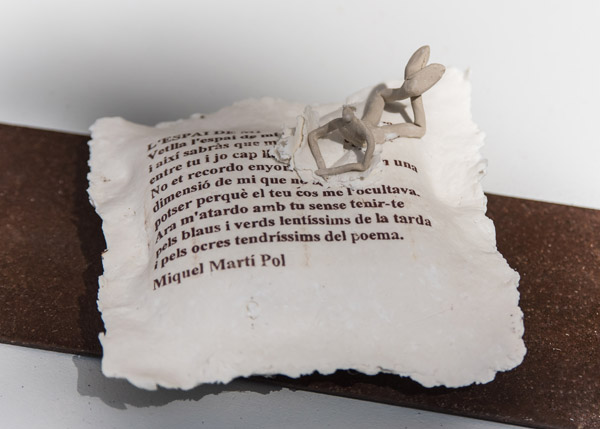 L'ESPAI DE
Vetlla l'espai de
i així sabràs que
entre tu i jo cap
No et recordo una
dimensió de mi que
potser perquè el teu cos me l'ocultava.
Ara m'atardo amb tu sense tenir-te
pels blaus i verds lentíssims de la tarda
i pels ocres tendríssims del poema.
Miquel Martí Pol